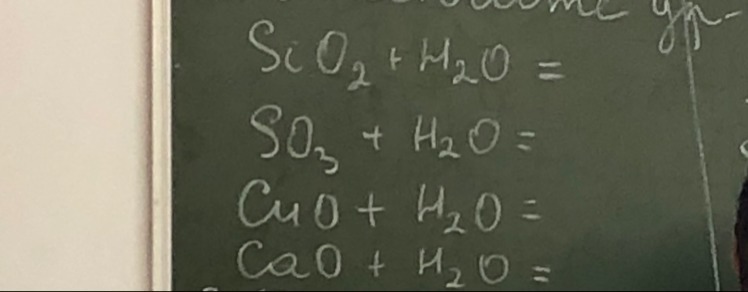 SiO₂ + H₂O =
SO₃ + H₂O =
CuO + H₂O =
CaO + H₂O =